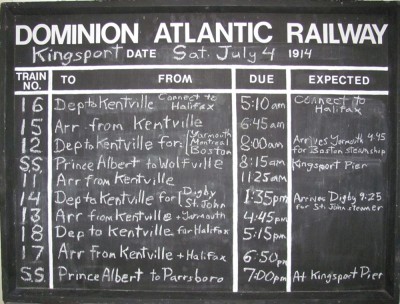 DOMINION ATLANTIC RAILWAY
Kingsport DATE Sat. July 4 1914
TRAIN NO. TO FROM DUE EXPECTED
16 Dep to Kentville Connect to Halifax 5:10 am Connect to Halifax
15 Arr from Kentville 6:45 am
12 Dep to Kentville for: Yarmouth Montreal Boston 8:00 am Arrives Yarmouth 4:45 for Boston steamship
S.S. Prince Albert to Wolfville 8:15 am Kingsport Pier
11 Arr from Kentville 11:25 am
14 Dep to Kentville for Digby St. John 1:35 pm Arrives Digby 9:25 for St. John steamer
13 Arr from Kentville + Yarmouth 4:45 pm
18 Dep to Kentville for Halifax 5:15 pm
17 Arr from Kentville + Halifax 6:50 pm
S.S. Prince Albert to Parrsboro 7:00 pm At Kingsport Pier